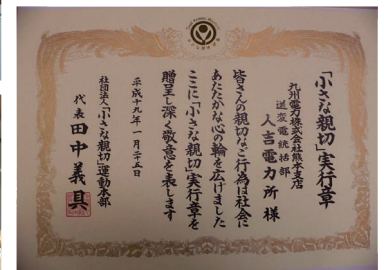 「小さな親切」実行章
九州電力株式会社熊本支店
送変電統括部
人吉電力所 様
皆さんの親切なご行為は社会に
あたたかな心の輪を広げました
ここに「小さな親切」実行章を
贈呈し深く敬意を表します
平成十九年一月二十五日
社団法人「小さな親切」運動本部
代表 田中義具